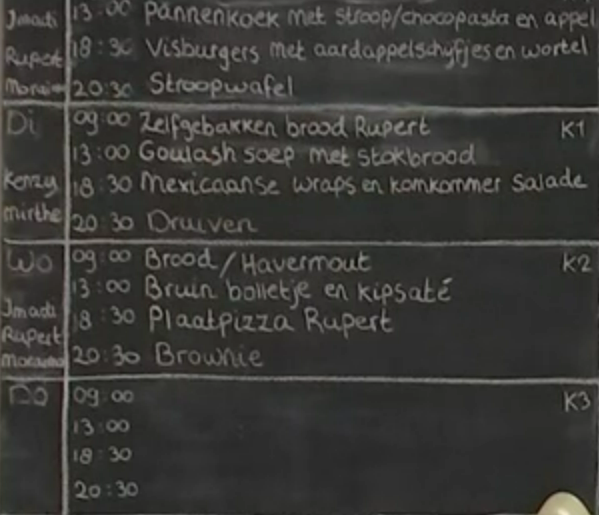 13:00 pannenkoek met stroop/chocopasta en appel
Imadi
18:30 Visburgers met aardappelschyfjes en wortel
Rupert
20:30 Stroopwafel
Di 09:00 Zelfgebakken brood Rupert K1
13:00 Goulash soep met stokbrood
Kenzy 18:30 Mexicaanse wraps en komkommer Salade
mirthe
20:30 Druiven
Wo 09:00 Brood/Havermout K2
13:00 Bruin bolletje en kipsaté
Imadi
18:30 Plaatpizza Rupert
Rupert
20:30 Brownie
Do 09:00 K3
13:00
18:30
20:30